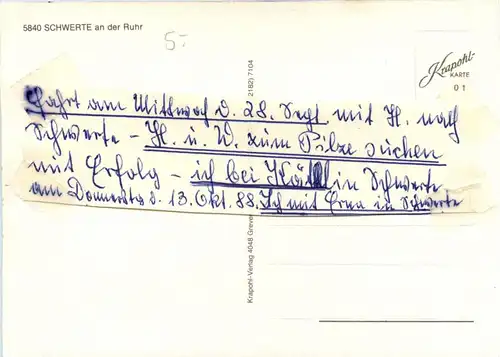 5840 SCHWERTE an der Ruhr
5.-
Krapohl-
KARTE
01
Fahrt am Mittwoch d. 28. Sept mit H. nach
Schwerte - H. u. W. zum Pilze suchen
mit Erfolg - ich bei in Schwerte
am Donnerstag d. 13. Okt. 88. Ich mit Erna in Schwerte
Krapohl-Verlag 4048 Greven
2182) 7104